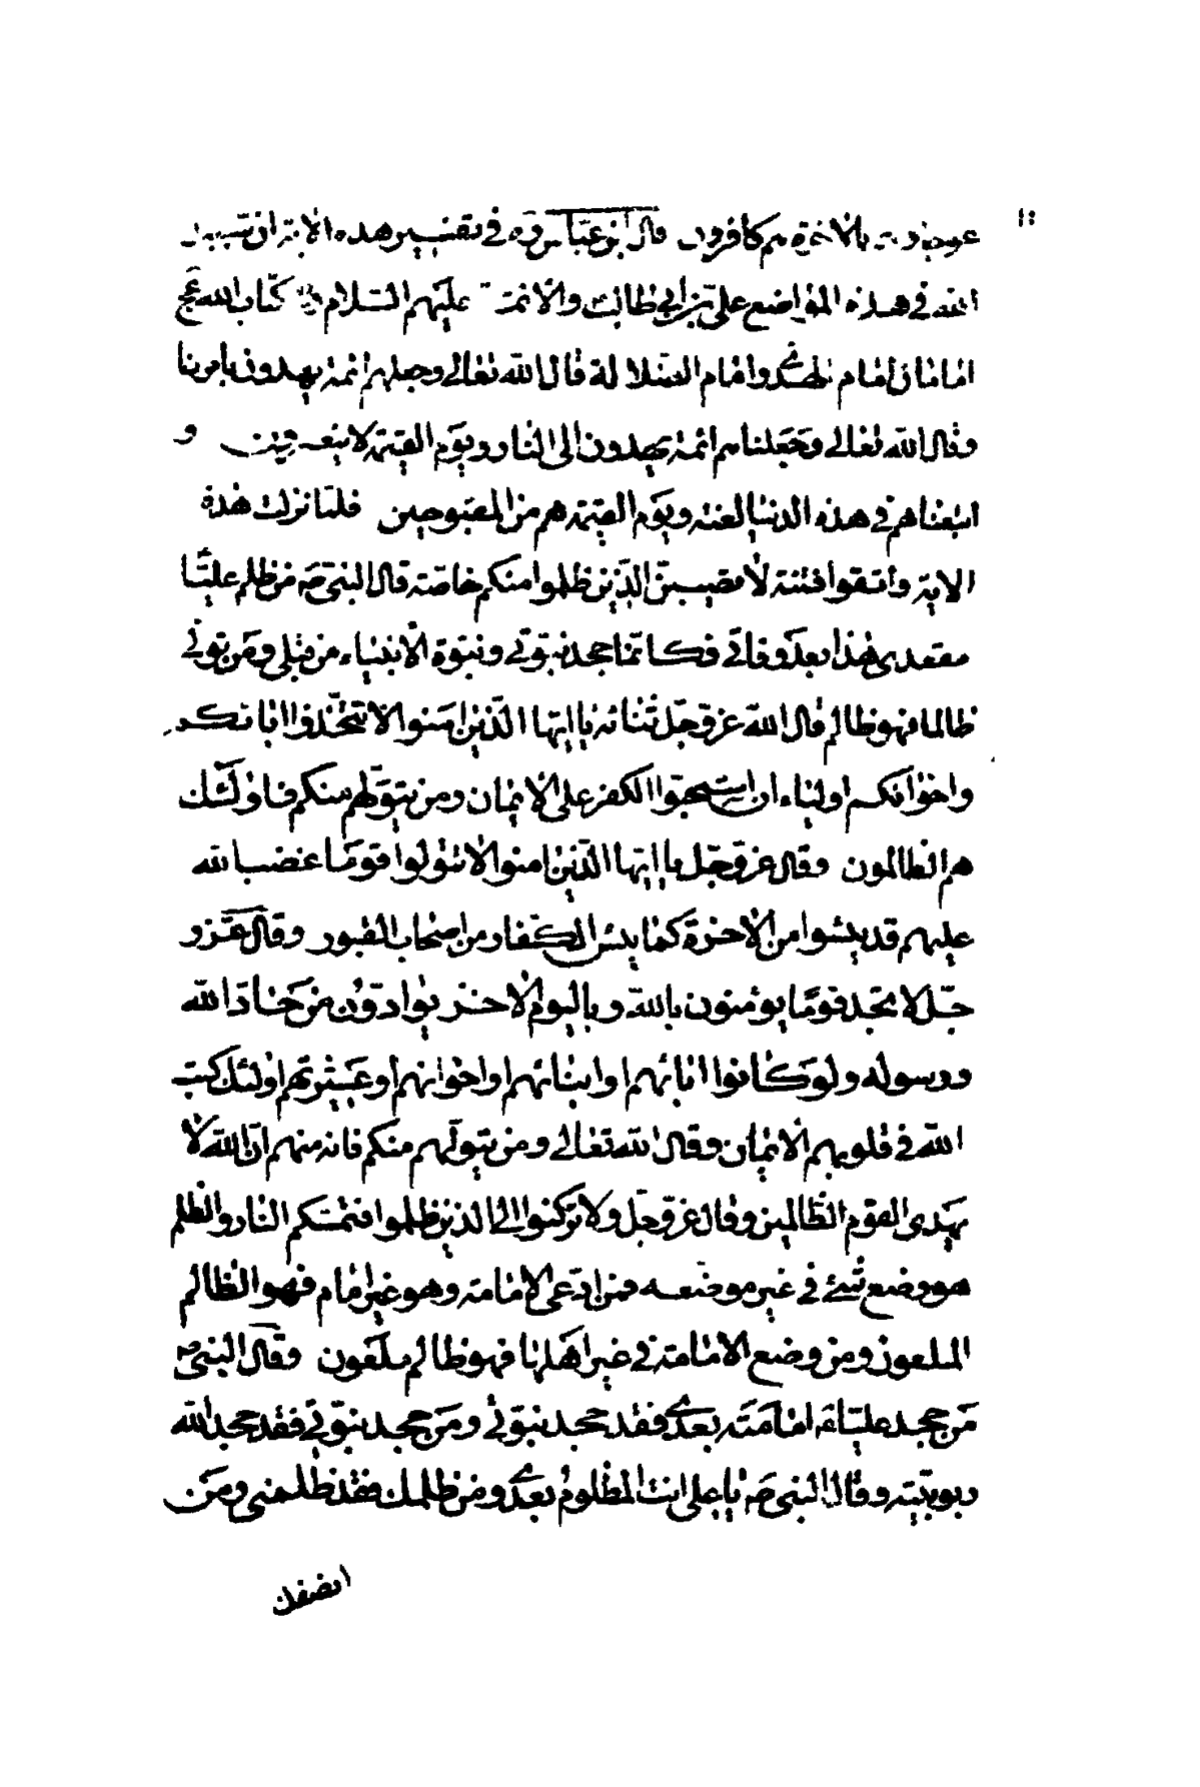 عوجا وهم بالاخرة هم كافرون قال ابن عباس ره في تفسير هذه الاية ان سبيل
الله في هذه المواضع علي بن ابي طالب والائمة عليهم السلام في كتاب الله عج
امامان امام الهدى وامام الضلالة قال الله تعالى وجعلهم ائمة يهدون بامرنا
وقال الله تعالى وجعلناهم ائمة يهدون الى النار ويوم القيمة لا ينصرون و
اتبعناهم في هذه الدنيا لعنة ويوم القيمة هم من المقبوحين فلما نزلت هذه
الاية واتقوا فتنة لا تصيبن الذين ظلموا منكم خاصة قال النبي ص من ظلم عليا
مقعدى هذا بعد وفاتي فكانما جحد نبوتي ونبوة الانبياء من قبلي ومن تولى
ظالما فهو ظالم قال الله عز وجل ثنائه يا ايها الذين امنوا لا تتخذوا اباءكم
واخوانكم اولياء ان استحبوا الكفر على الايمان ومن يتولهم منكم فاولئك
هم الظالمون وقال عز وجل يا ايها الذين امنوا لا تتولوا قوما غضب الله
عليهم قد يئسوا من الاخرة كما يئس الكفار من اصحاب القبور وقال عز و
جل لا تجد قوما يؤمنون بالله وباليوم الاخر يوادون من حاد الله
ورسوله ولو كانوا ابائهم او ابنائهم او اخوانهم او عشيرتهم اولئك كتب
الله في قلوبهم الايمان وقال الله تعالى ومن يتولهم منكم فانه منهم ان الله لا
يهدى القوم الظالمين وقال عز وجل ولا تركنوا الى الذين ظلموا فتمسكم النار والظلم
هو وضع شئ في غير موضعه فمن ادعى الامامة وهو غير امام فهو الظالم
الملعون ومن وضع الامامة في غير اهلها فهو ظالم ملعون وقال النبي ص
من جحد عليا ع امامته بعدى فقد جحد نبوتي ومن جحد نبوتي فقد جحد الله
ربوبيته وقال النبي ص يا علي انت المظلوم بعدى ومن ظلمك فقد ظلمني ومن
انصفك